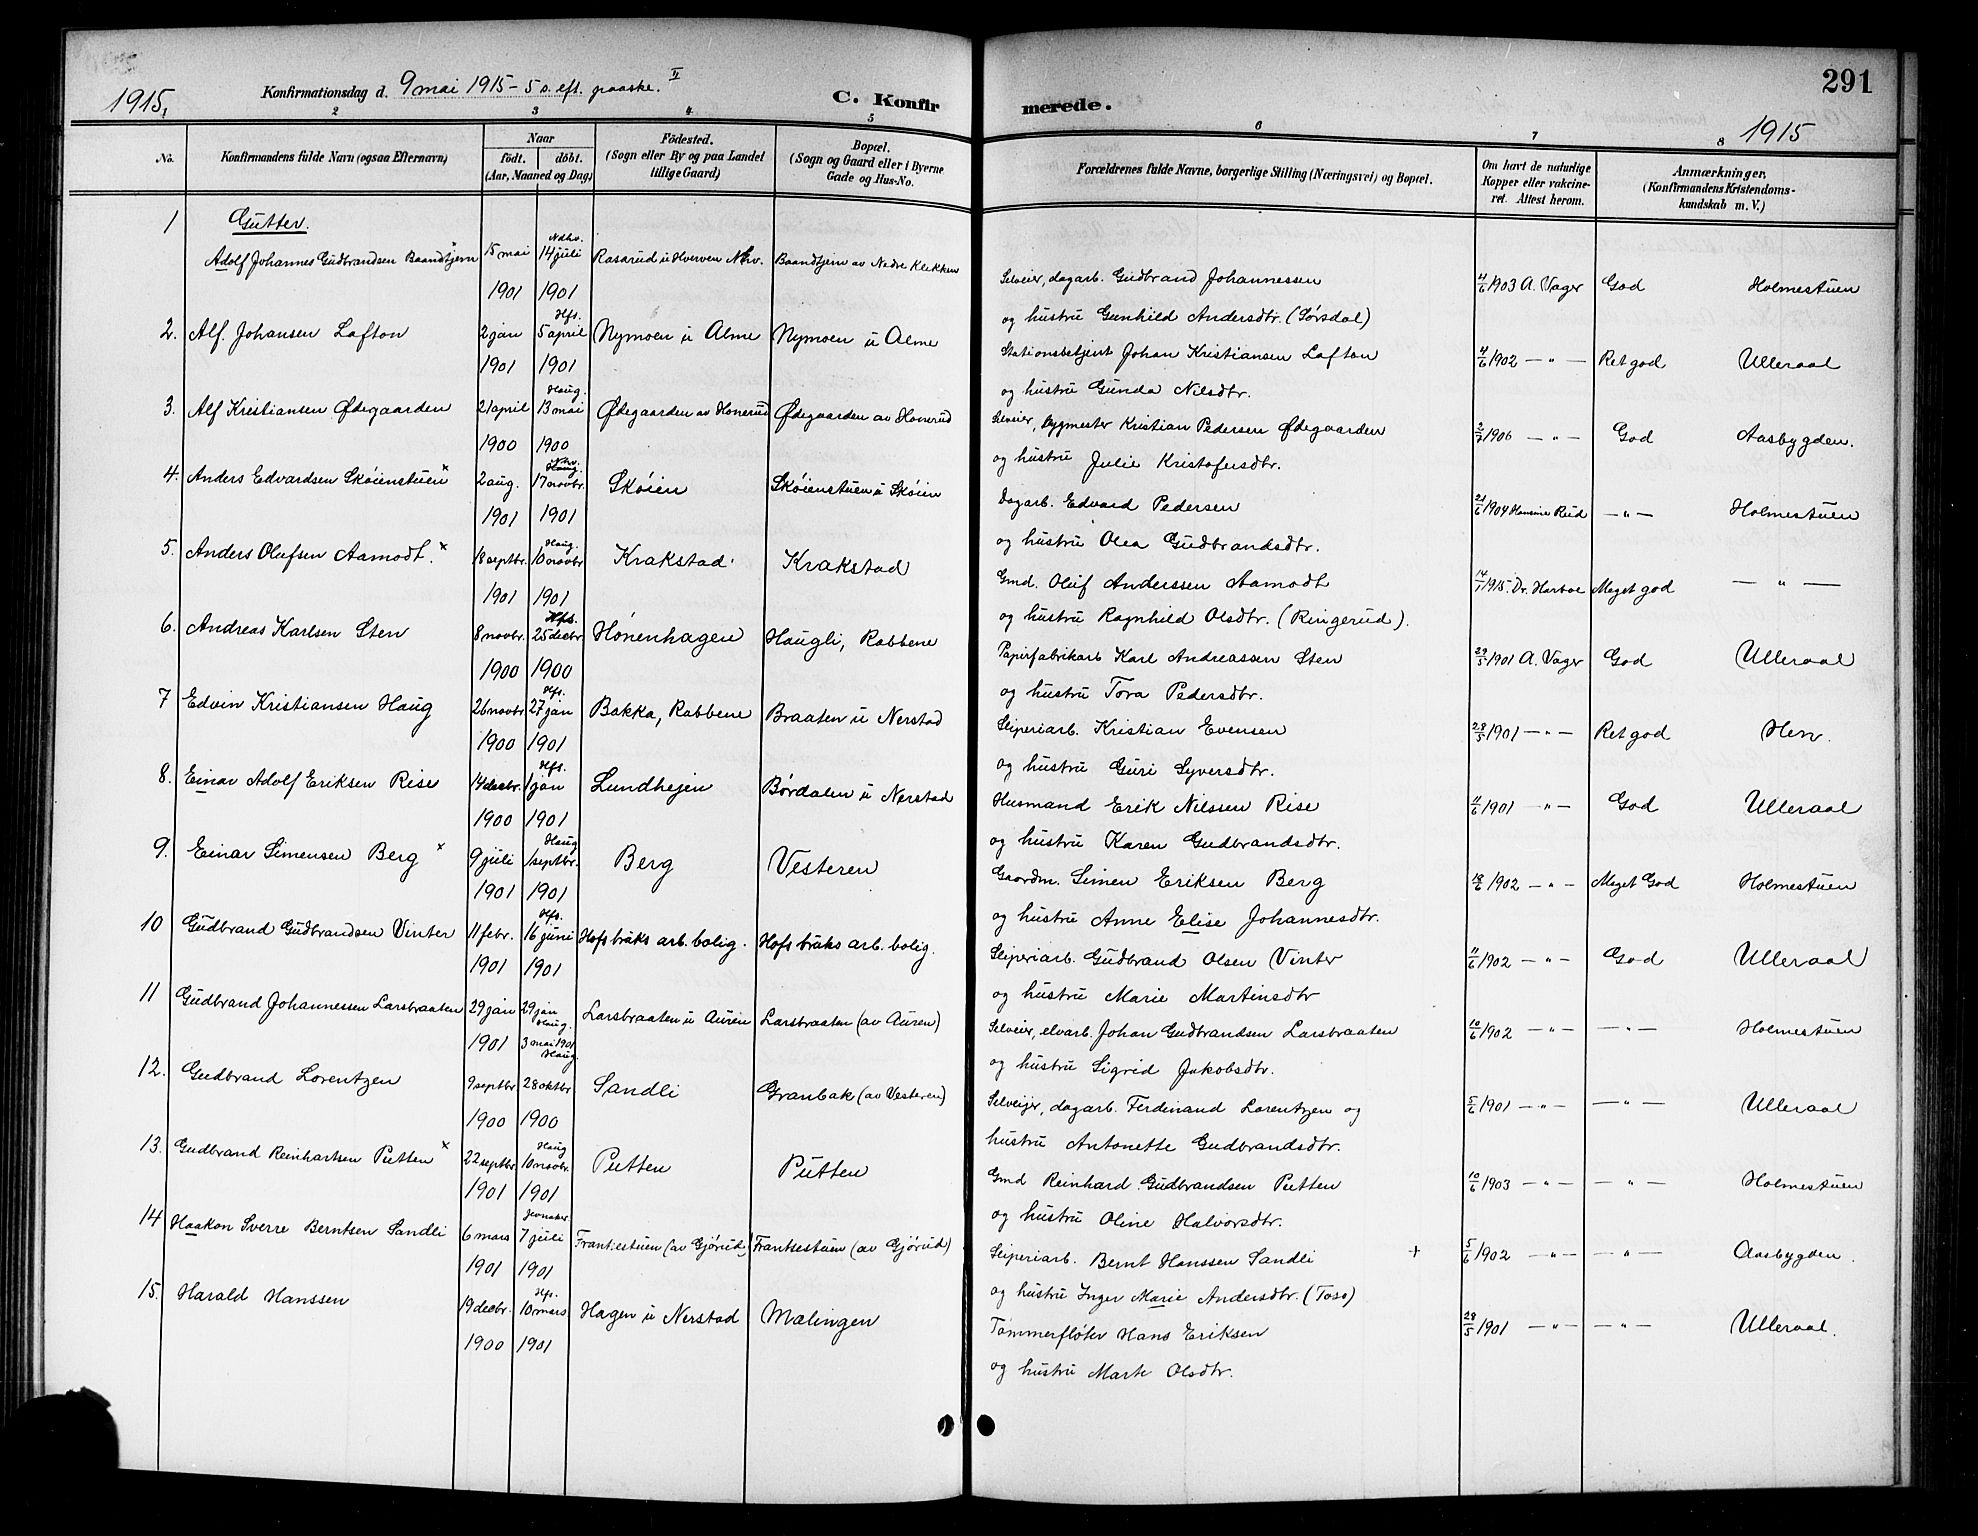 1915,
Konfirmationsdag d. 9 mai 1915 - 5 s. eft. paaske. II
C. Konfirmerede.
291
1915
2 3 4 5 6 7 8
No.
Konfirmandens fulde Navn (ogsaa Efternavn)
Naar
født. døbt.
(Aar, Maaned og Dag)
Fødested.
(Sogn eller By og paa Landet
tillige Gaard)
Bopæl.
(Sogn og Gaard eller i Byerne
Gade og Hus-No.
Forældrenes fulde Navne, borgerlige Stilling (Næringsvei) og Bopæl.
Om havt de naturlige
Kopper eller vakcine-
ret. Attest herom.
Anmærkninger,
(Konfirmandens Kristendoms-
kundskab m. V.)
1 Gutter.
Ndhv.
Adolf Johannes Gudbrandsen Baandtjern x 15 mai 14 juli Rasarud u Hverven Nhv. Baandtjern av Nedre Klekken Selveier, dagarb. Gudbrand Johannessen 4/6 1903 A. Vager God Holmestuen
1901 1901 og hustru Gunhild Andersdtr. (Sørsdal)
Hfs.
2. Alf Johansen Lafton 2 jan 5 april Nymoen u Alme Nymoen u Alme Stationsbetjent Johan Kristiansen Lafton 4/6 1902 — " — Ret god Ulleraal
1901 1901 og hustru Gunda Nilsdtr.
Haug.
3. Alf Kristiansen Ødegaarden 21 april 13 mai Ødegaarden av Honerud Ødegaarden av Honerud Selveier, bygmester Kristian Pedersen Ødegaarden 2/7 1906 — " — God Aasbygden.
1900 1900 og hustru Julie Kristofersdtr.
Nhv.
4. Anders Edvardsen Skøienstuen x 2 aug. 17 novbr. Skøien Skøienstuen u Skøien Dagarb. Edvard Pedersen 21/6 1904 Hansine Rud — " — Holmestuen
1901 1901 og hustru Olea Gudbrandsdtr.
Haug.
5. Anders Olufsen Aamodt. x 18 septbr. 10 novbr Krakstad Krakstad Gmd. Oluf Anderssen Aamodt 14/1 1915. Dr. Harboe Meget god — " —
1901 1901 og hustru Ragnhild Olsdtr. (Ringerud).
Hfs.
6. Andreas Karlsen Sten 8 novbr. 25 decbr. Hønenhagen Haugli, Rabbene Papirfabrikarb Karl Andreassen Sten 29/5 1901 A. Vager God Ulleraal
1900 1900 og hustru Tora Pedersdtr.
Hfs.
7 Edvin Kristiansen Haug 26 novbr 27 jan Bakka, Rabbene Braaten u Nerstad Sliperiarb. Kristian Evensen 28/5 1901 — " — Ret god Hen.
1900 1901 og hustru Guri Syversdtr.
Hfs.
8. Einar Adolf Eriksen Rise 14 decbr. 1 jan Lundhejen Børdalen u Nerstad Husmand Erik Nilssen Rise 11/6 1901 " — God Ulleraal
1900 1901 og hustru Karen Gudbrandsdtr.
Haug
9. Einar Simensen Berg x 9 juli 1 septbr. Berg Vesteren Gaardm. Simen Eriksen Berg 18/6 1902 - " - Meget God Holmestuen
1901 1901 og hustru Anne Elise Johannesdtr.
Hfs.
10 Gudbrand Gudbrandsen Vinter 11 febr. 16 juni Hofsbruks arb. bolig. Hofsbruks arb. bolig. Sliperiarb. Gudbrand Olsen Vinter 11/6 1902 — " — God Ulleraal
1901 1901 og hustru Marie Martinsdtr
11 Gudbrand Johannessen Larsbraaten 29 jan 29 jan Larsbraaten u Auren Larsbraaten (av Auren) Selveier, elvarb. Johan Gudbrandsen Larsbraaten 10/6 1902 — " — — " — Holmestuen
Haug.
1901 3 mai 1901 og hustru Sigrid Jakobsdtr.
Haug.
12. Gudbrand Lorentzen 9 septbr 28 oktbr. Sandli Granbak (av Vesteren) Selveijer, dagarb. Ferdinand Lorentzen og 5/6 1901 — " — — " — Ulleraal
1900 1900 hustru Antonette Gudbrandsdtr.
Haug
13. Gudbrand Reinhartsen Putten x 22 septbr 10 novbr. Putten Putten Gmd Reinhard Gudbrandsen Putten 10/6 1903 — " — — " — Holmestuen
1901 1901 og hustru Oline Halvorsdtr.
Jevnaker
14 Haakon Sverre Berntsen Sandli 6 mars 7 juli Frantsestuen (av Gjørud) Frantsestuen (av Gjørud) Sliperiarb. Bernt Hanssen Sandli + 5/6 1902 — " — — " — Aasbygden.
1901 1901 og hustru Inger Marie Andersdtr. (Toso)
Hfs.
15. Harald Hanssen 19 decbr. 10 mars Hagen u Nerstad Mælingen Tømmerfløter Hans Eriksen 28/5 1901 — " — — " — Ulleraal.
1900 1901 og hustru Marte Olsdtr.